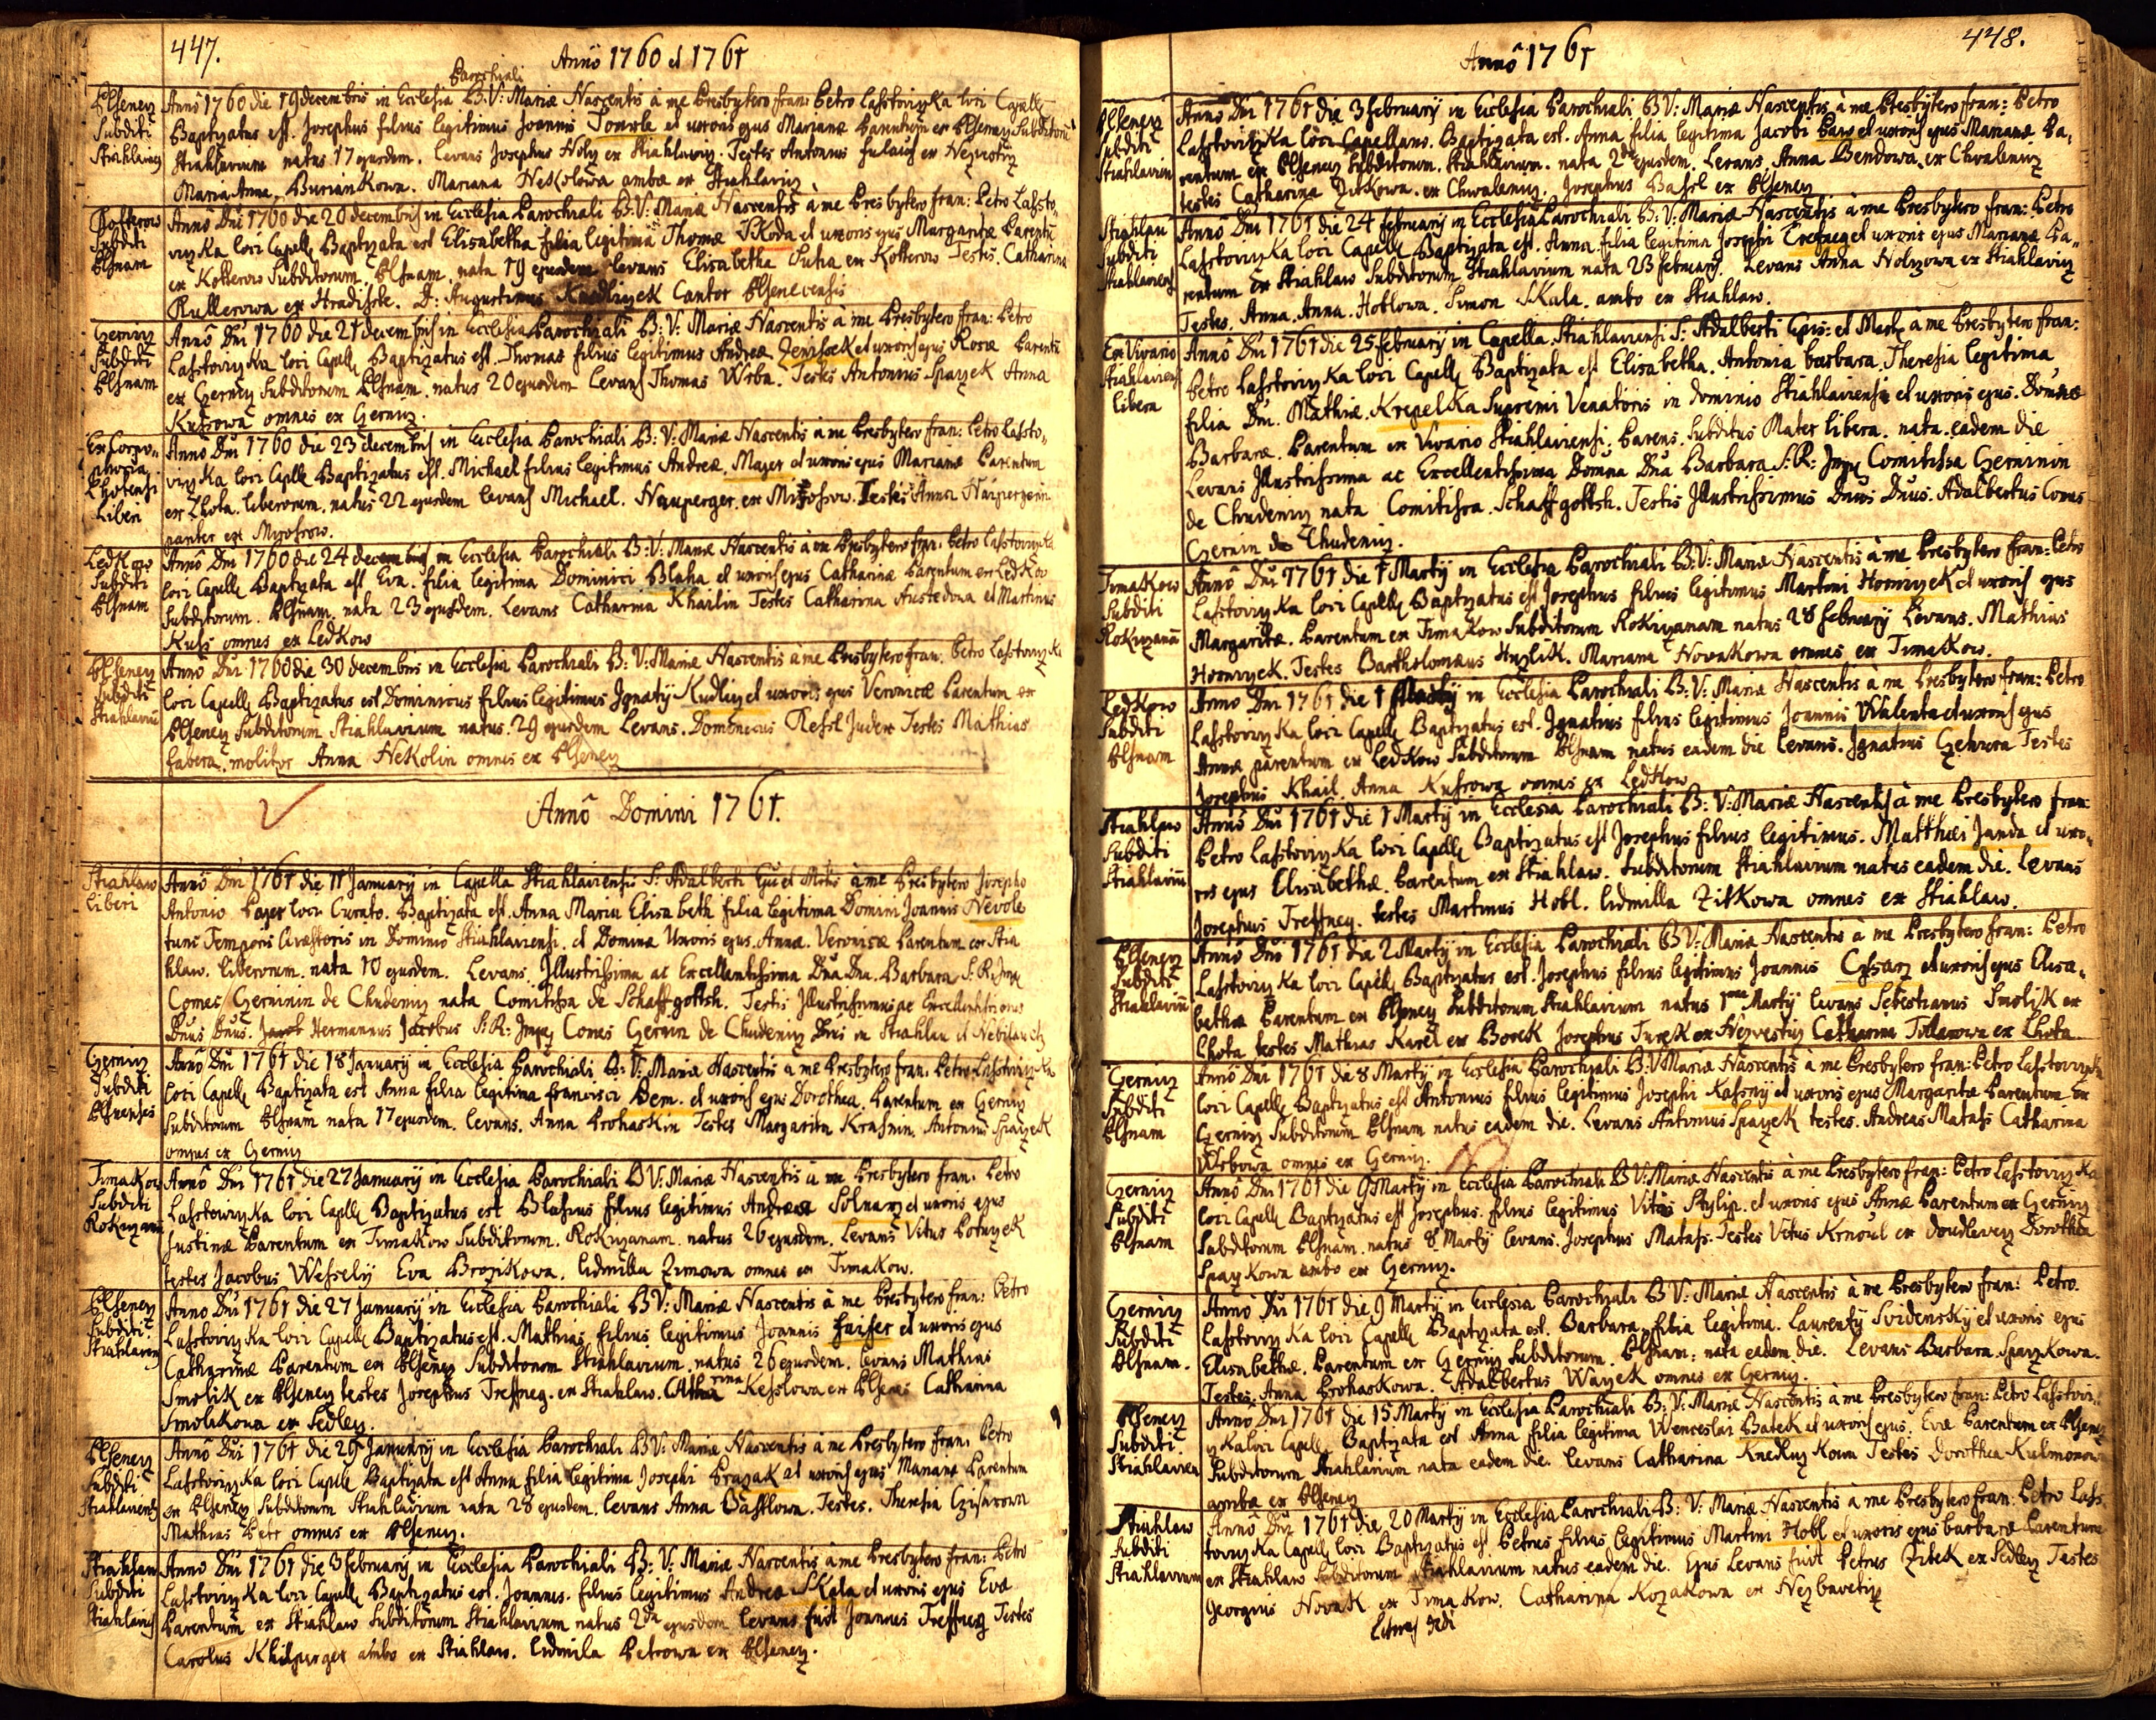 447.
Anno 1760 et 1761
Parochiali
Plsenecz
Subditi
Stiahlavien
Anno 1760 die 19 decembris in Ecclesia B: V: Mariæ Nascentis à me Presbytero fran: Petro Lasstoviczka loci Capell
Baptizatus est. Josephus filius legitimus Joannis et uxoris ejus Marianæ Parentum ex Plsenecz Subditorū
Stiahlavium natus 17 ejusdem. Levans Josephus Holy ex Stiahlawicz. Testes Antonius ex
Maria Anna. Buriankowa. Mariana Nekolowa ambæ ex Stiahlavicz
Kotterow
Subditi
Plsnam
Anno Dni 1760 die 20 decembris in Ecclesia Parochiali B: V: Mariæ Nascentis à me Presbytero fran: Petro Lassto„
viczka loci Capell Baptizata est Elisabetha filia legitima Thomæ Skoda et uxoris ejus Margaritæ Parentū
ex Kotterow Subditorum. Plsnam. nata 19 ejusdem levans Elisabetha Sutra ex Kotterow Testes. Catharina
Kullerowa ex Hradisste. D: Augustinus Cantor Plsenecensis
Czernicz
Subditi
Plsnam
Anno Dni 1760 die 21 decembris in Ecclesia Parochiali B: V: Mariæ Nascentis à me Presbytero fran: Petro
Lasstoviczka loci Capell Baptizatus est. Thomas filius legitimus Andreæ Jenissek et uxoris ejus Rosæ Parentū
ex Czernicz Subditorum Plsnam. natus 20 ejusdem levans Thomas Wrba. Testes Antonius Spaczek Anna
Kussowa omnes ex Czernicz.
Ex Corpo„
Lhotensi
Liberi
Anno Dni 1760 die 23 decembris in Ecclesia Parochiali B: V: Mariæ Nascentis à me Presbytero fran: Petro Lassto„
viczka loci Capell Baptizatus est. Michael filius legitimus Andreæ. Mayer et uxoris ejus Marianæ Parentum
ex Lhota. liberorum. natus 22 ejusdem levans Michael. Nayperger ex Mirossow. Testes Anna
pariter ex Myrossow.
Ledkow
Subditi
Plsnam
Anno Dni 1760 die 24 decembris in Ecclesia Parochiali B: V: Mariæ Nascentis à me Presbytero fran: Petro Lasstoviczka
loci Capell Baptizata est Eva. filia legitima Dominici Blaha et uxoris ejus Catharinæ Parentum ex Ledkow
Subditorum. Plsnam. nata 23 ejusdem. Levans Catharina Khailin Testes Catharina Austedowa et Martinus
Kuss omnes ex Ledkow
Plsenecz
Subditi
Stiahlaviū
Anno Dni 1760 die 30 decembris in Ecclesia Parochiali B: V: Mariæ Nascentis à me Presbytero fran: Petro Lasstoviczka
loci Capell Baptizatus est Dominicus filius legitimus Ignatÿ Kudlicz et uxoris ejus Veronicæ Parentum ex
Plsenecz Subditorum Stiahlavium natus 29 ejusdem Levans. Domenicus Ressl Judex Testes Mathias
fabera. molitor Anna Nekolin omnes ex Plsenecz
Anno Domini 1761.
Stiahlaw
liberi
Anno Dni 1761 die 11 January in Capella Stiahlaviensi S: Adalberti à me Presbytero Josepho
Antonio Payer loci Curato. Baptizata est. Anna Maria Elisabeth filia legitima Domini Joannis Nevole
tunc Temporis in Dominio Stiahlaviensi. et Dominæ Uxoris ejus Annæ. Veronicæ Parentum ex Stia
hlaw. liberorum. nata 10 ejusdem. Levans. Jllustrissima ac Excellentissima Dna Dna. Barbara S: R: Imp
Comes Czerninin de Chudenicz nata Comitissa de Schaffgottsh. Testis Jllustrissimus ac Excellentissimus
Dnus Dnus. Hermannus Jacobus S: R: Impy Comes Czernin de Chudenicz Dni in Stiahlau et Nebilau etz
Czernicz
Subditi
Plsnenses
Anno Dni 1761 die 18 January in Ecclesia Parochiali B: V: Mariæ Nascentis à me Presbytero fran: Petro Lasstoviczka
loci Capell Baptizata est Anna filia legitima francisci Bem. et uxoris ejus Dorotheæ. Parentum ex Czernicz
Subditorum Plsnam nata 17 ejusdem. levans. Anna Prohaskin Testes Margarita Krasnin. Antonius Spaczek
omnes ex Czernicz
Timakow
Subditi
Rokyzanū
Anno Dni 1761 die 27 January in Ecclesia Parochiali B V: Mariæ Nascentis à me Presbytero fran: Petro
Lasstowiczka loci Capell Baptizatus est Blasius filius legitimus Andreæ Solnarz et uxoris ejus
Justinæ Parentum ex Timakow Subditorum. Rokyzanam. natus 26 ejusdem. Levans Vitus Potuzek
testes Jacobus Wessely Eva Brozikowa. lidmilla Zimowa omnes ex Timakow.
Plsenecz
Subditi
Stiahlavien
Anno Dni 1761 die 27 January in Ecclesia Parochiali B V: Mariæ Nascentis à me Presbytero fran: Petro
Lasstoviczka loci Capell Baptizatus est. Mathias filius legitimus Joannis et uxoris ejus
Catharinæ Parentum ex Plsenecz Subditorum Stiahlavium. natus 26 ejusdem. levans Mathias
Smolik ex Plsenecz testes Josephus Treffney. ex Stiahlaw. Catharina Kesslowa ex Plsenec Catharina
Smolikowa ex Sedlecz.
Plsenecz
Subditi
Stiahlaviens
Anno Dni 1761 die 29 January in Ecclesia Parochiali B V: Mariæ Nascentis à me Presbytero fran: Petro
Lasstoviczka loci Capell Baptizata est Anna filia legitima Josephi Prazak et uxoris ejus Marianæ Parentum
ex Plsenecz Subditorum Stiahlavium nata 28 ejusdem. levans Anna Basstlowa. Testes. Theresia Czisarowa
Mathias Petr omnes ex Plsenecz.
Stiahlau
Subditi
Stiahlaviens
Anno Dni 1761 die 3 february in Ecclesia Parochiali B: V: Mariæ Nascentis à me Presbytero fran: Petro
Lasstoviczka loci Capell Baptizatus est. Joannes. filius legitimus Andreæ Skala et uxoris ejus Evæ
Parentum ex Stiahlaw Subditorum Stiahlavium natus 2da ejusdem levans fuit Joannes Treffney Testes
Carolus Khilperger ambo ex Stiahlaw. lidmila Petrowa ex Plsenecz.
448.
Anno 1761
Plsenecz
Subditi
Stiahlavien
Anno Dni 1761 die 3 february in Ecclesia Parochiali B V: Mariæ Nascentis à me Presbytero fran: Petro
Lasstoviczka loci Capellano. Baptizata est. Anna filia legitima Jacobi et uxoris ejus Marianæ Pa„
rentum ex Plsenecz Subditorum. Stiahlavium. nata 2da ejusdem. Levans. Anna Bendowa. ex Chvalenicz
testes Catharina Zitkowa. ex Chwalenicz. Josephus Bassl ex Plsenecz
Stiahlau
Subditi
Stiahlaviens
Anno Dni 1761 die 24 february in Ecclesia Parochiali B: V: Mariæ Nascentis à me Presbytero fran: Petro
Lasstoviczka loci Capell Baptizata est. Anna. filia legitima Josephi et uxoris ejus Marianæ Pa„
rentum ex Stiahlaw Subditorum Stiahlavium nata 23 february. Levans Anna Holyzowa ex Stiahlavicz
Testes. Anna. Anna. Hoblowa. Simon Skala. ambo ex Stiahlaw.
Ex Vivario
Stiahlaviens
libera
Anno Dni 1761 die 25 february in Capella. Stiahlaviensi S: Adalberti Epis: et Mart à me Presbytero fran:
Petro Lasstoviczka loci Capell Baptizata est Elisabetha. Antonia barbara. Theresia legitima
filia Dni. Mathiæ. Krepelka Supremi Venatoris in dominio Stiahlaviensi et uxoris ejus. Dominæ
Barbaræ. Parentum ex Vivario Stiahlaviensi. Parens. Subditus Mater libera. nata. eadem die
Levans Jllustrissima ac Excellentissima Domina Dna Barbara S: R: Impy Comitissa Czerninin
de Chudenicz nata Comitissa. Schaffgottsh. Testis Jllustrissimus Dnus Dnus. Adalbertus Comes
Czernin de Chudenicz.
Timakow
Subditi
Rokyzanū
Anno Dni 1761 die 1 Marty in Ecclesia Parochiali B: V: Mariæ Nascentis à me Presbytero fran: Petro
Lasstoviczka loci Capell Baptizatus est Josephus filius legitimus Martini Horniczek et uxoris ejus
Margaritæ. Parentum ex Timakow Subditorum Rokyzanam natus 28 february Levans. Mathias
Horniczek. Testes Bartholomæus Huzlik. Mariana Novakowa omnes ex Timakow.
Ledkow
Subditi
Plsnam
Anno Dni 1761 die 1 Marty in Ecclesia Parochiali B: V: Mariæ Nascentis à me Presbytero fran: Petro
Lasstoviczka loci Capell Baptizatus est. Ignatius filius legitimus Joannis Walenta et uxoris ejus
Annæ parentum ex Ledkow Subditorum Plsnam natus eadem die levans. Ignatius Testes
Josephus Khail. Anna Kussowa omnes ex Ledkow
Stiahlaw
Subditi
Stiahlaviū
Anno Dni 1761 die 1 Marty in Ecclesia Parochiali B: V: Mariæ Nascentis à me Presbytero fran:
Petro Lasstoviczka loci Capell Baptizatus est Josephus filius legitimus. Matthæi Janda et uxo„
ris ejus Elisabethæ. Parentum ex Stiahlaw. Subditorum Stiahlavium natus eadem die. Levans
Josephus Treffney. testes Martinus Hobl. lidmilla Zitkowa omnes ex Stiahlaw.
Plsenecz
Subditi
Stiahlaviū
Anno Dni 1761 die 2 Marty in Ecclesia Parochiali B V: Mariæ Nascentis à me Presbytero fran: Petro
Lasstoviczka loci Capell Baptizatus est. Josephus filius legitimus Joannis Cysarz et uxoris ejus Elisa„
bethæ Parentum ex Plsenecz Subditorum Stiahlavium natus 1ma Marty levans Sebestianus Smolik ex
Lhota testes Mathias Karel ex Borek Josephus Turek ex Catharina ex Lhota
Czernicz
Subditi
Plsnam
Anno Dni 1761 die 8 Marty in Ecclesia Parochiali B: V: Mariæ Nascentis à me Presbytero fran: Petro Lasstoviczka
loci Capell Baptizatus est Antonius filius legitimus Josephi Kassny et uxoris ejus Margaritæ Parentum ex
Czernicz Subditorum Plsnam natus eadem die. Levans Antonius Spaczek testes. Andreas Matass Catharina
Wrbowa omnes ex Czernicz.
Czernicz
Subditi
Plsnam
Anno Dni 1761 die 9 Marty in Ecclesia Parochiali B V: Mariæ Nascentis à me Presbytero fran: Petro Lasstoviczka
loci Capell Baptizatus est Josephus. filius legitimus Viti Stylip. et uxoris ejus Annæ Parentum ex Czernicz
Subditorum Plsnam. natus 8 Marty levans. Josephus Matass. Testes Vitus Krnoul ex Doudlevecz Dorothea
Spaczkowa ambo ex Czernicz.
Czernicz
Subditi
Plsnam.
Anno Dni 1761 die 9 Marty in Ecclesia Parochiali B V: Mariæ Nascentis à me Presbytero fran: Petro.
Lasstoviczka loci Capell Baptizata est. Barbara filia legitima. Laurenty Svidensky et uxoris ejus
Elisabethæ. Parentum ex Czernicz Subditorum. Plsnam: nata eadem die. Levans Barbara. Spaczkowa.
Testes. Anna Prohaskowa. Adalbertus Waczek omnes ex Czernicz.
Plsenecz
Subditi
Stiahlavien
Anno Dni 1761 die 15 Marty in Ecclesia Parochiali B: V: Mariæ Nascentis à me Presbytero fran: Petro Lasstovi„
czka loci Capell Baptizata est Anna filia legitima Wenceslai Batek et uxoris ejus. Evæ Parentum ex Plsenecz
Subditorum Stiahlavium nata eadem die. levans Catharina Knedlyzkowa Testes Dorothea Kulmonowa
ambæ ex Plsenecz
Stiahlaw
Subditi
Stiahlavium
Anno Dni 1761 die 20 Marty in Ecclesia Parochiali B: V: Mariæ Nascentis à me Presbytero fran: Petro Lass
toviczka Capell loci Baptizatus est Petrus filius legitimus Martini Hobl et uxoris ejus barbaræ Parentum
ex Stiahlaw Subditorum Stiahlavium natus eadem die. Ejus Levans fuit Petrus Zitek ex Sedlecz Testes
Georgius Novak ex Timakow. Catharina Kozakowa ex Nezbavetiz